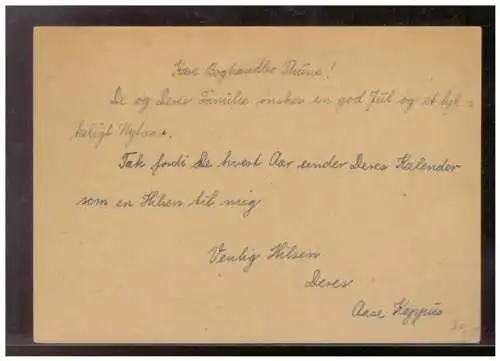 Kære Boghandler Thune!
De og Deres Familie ønskes en god Jul og et lyk-
keligt Nytaar.
Tak fordi De hvert Aar sender Deres Kalender
som en Hilsen til mig
Venlig Hilsen
Deres
Aase Koppus